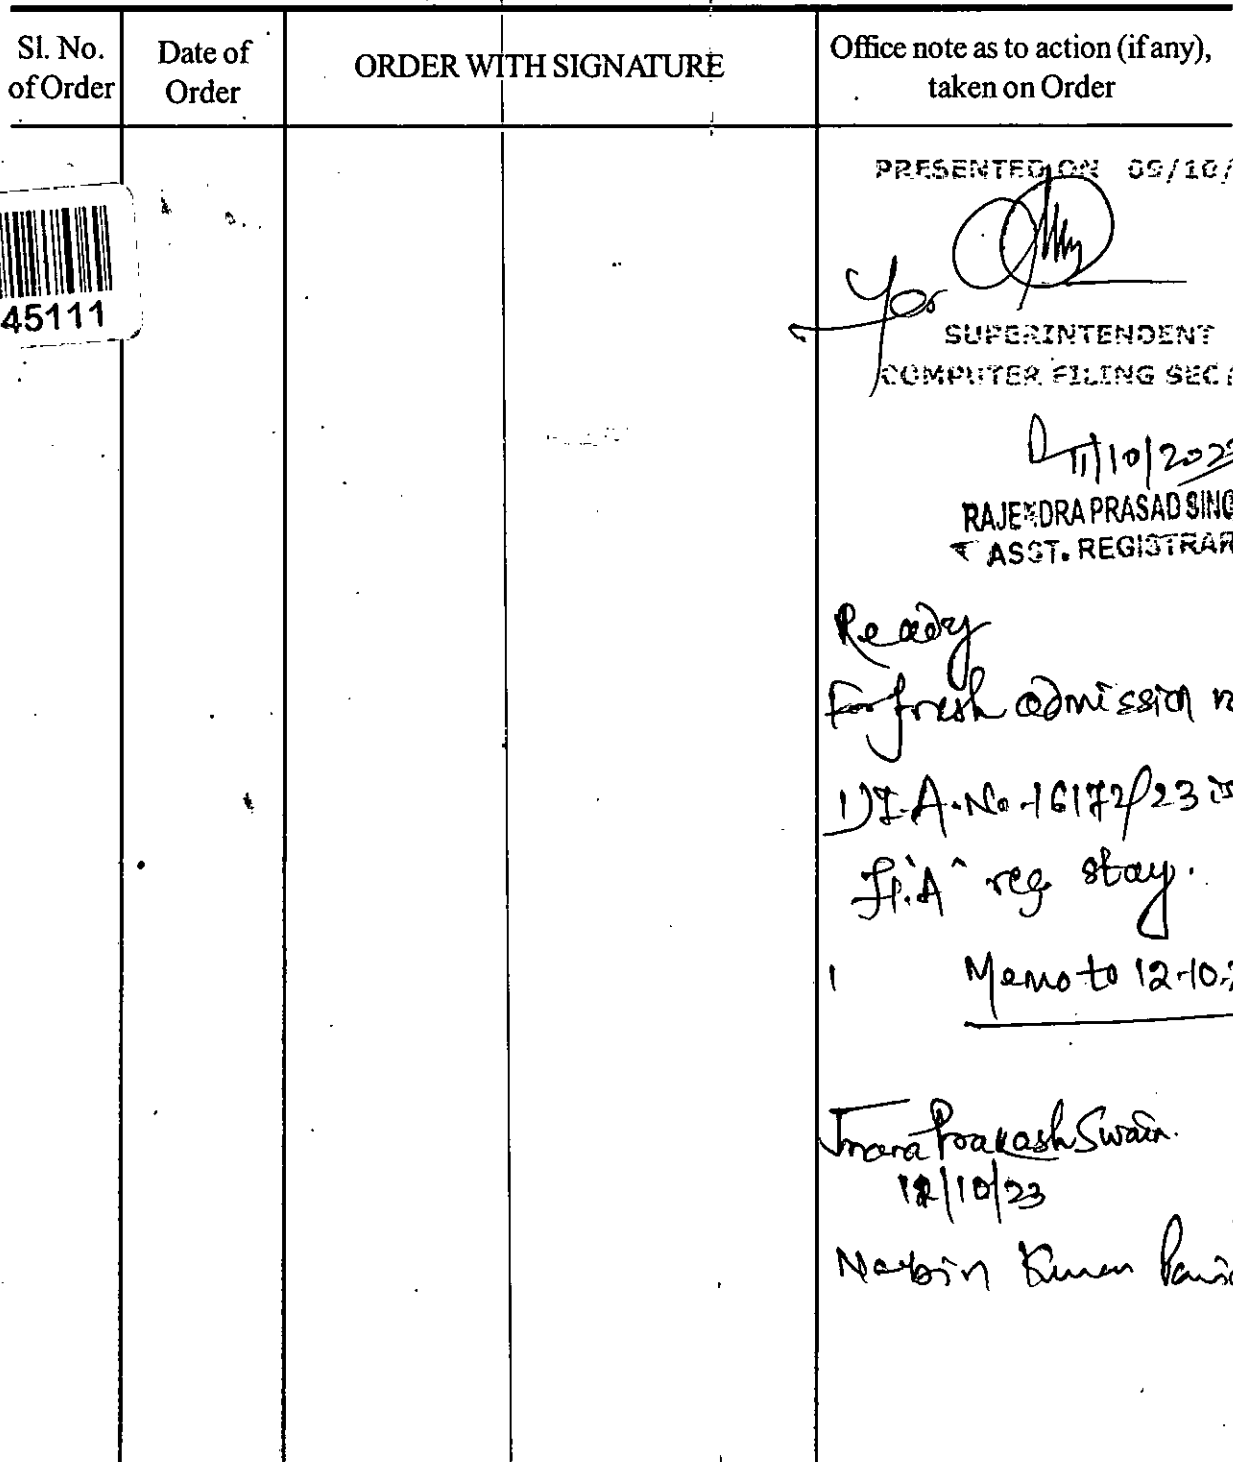 Sl. No. of Order
Date of Order
ORDER WITH SIGNATURE
Office note as to action (if any), taken on Order
45111
PRESENTED ON 09/10/
For
SUPERINTENDENT
COMPUTER FILING SEC
11/10/2023
RAJENDRA PRASAD SING
ASST. REGISTRAR
Ready
For fresh admission
1) I.A. No-16172/23 is
reg stay.
Memo to 12-10-
Prakash Swain.
12/10/23
Nabin Kumar